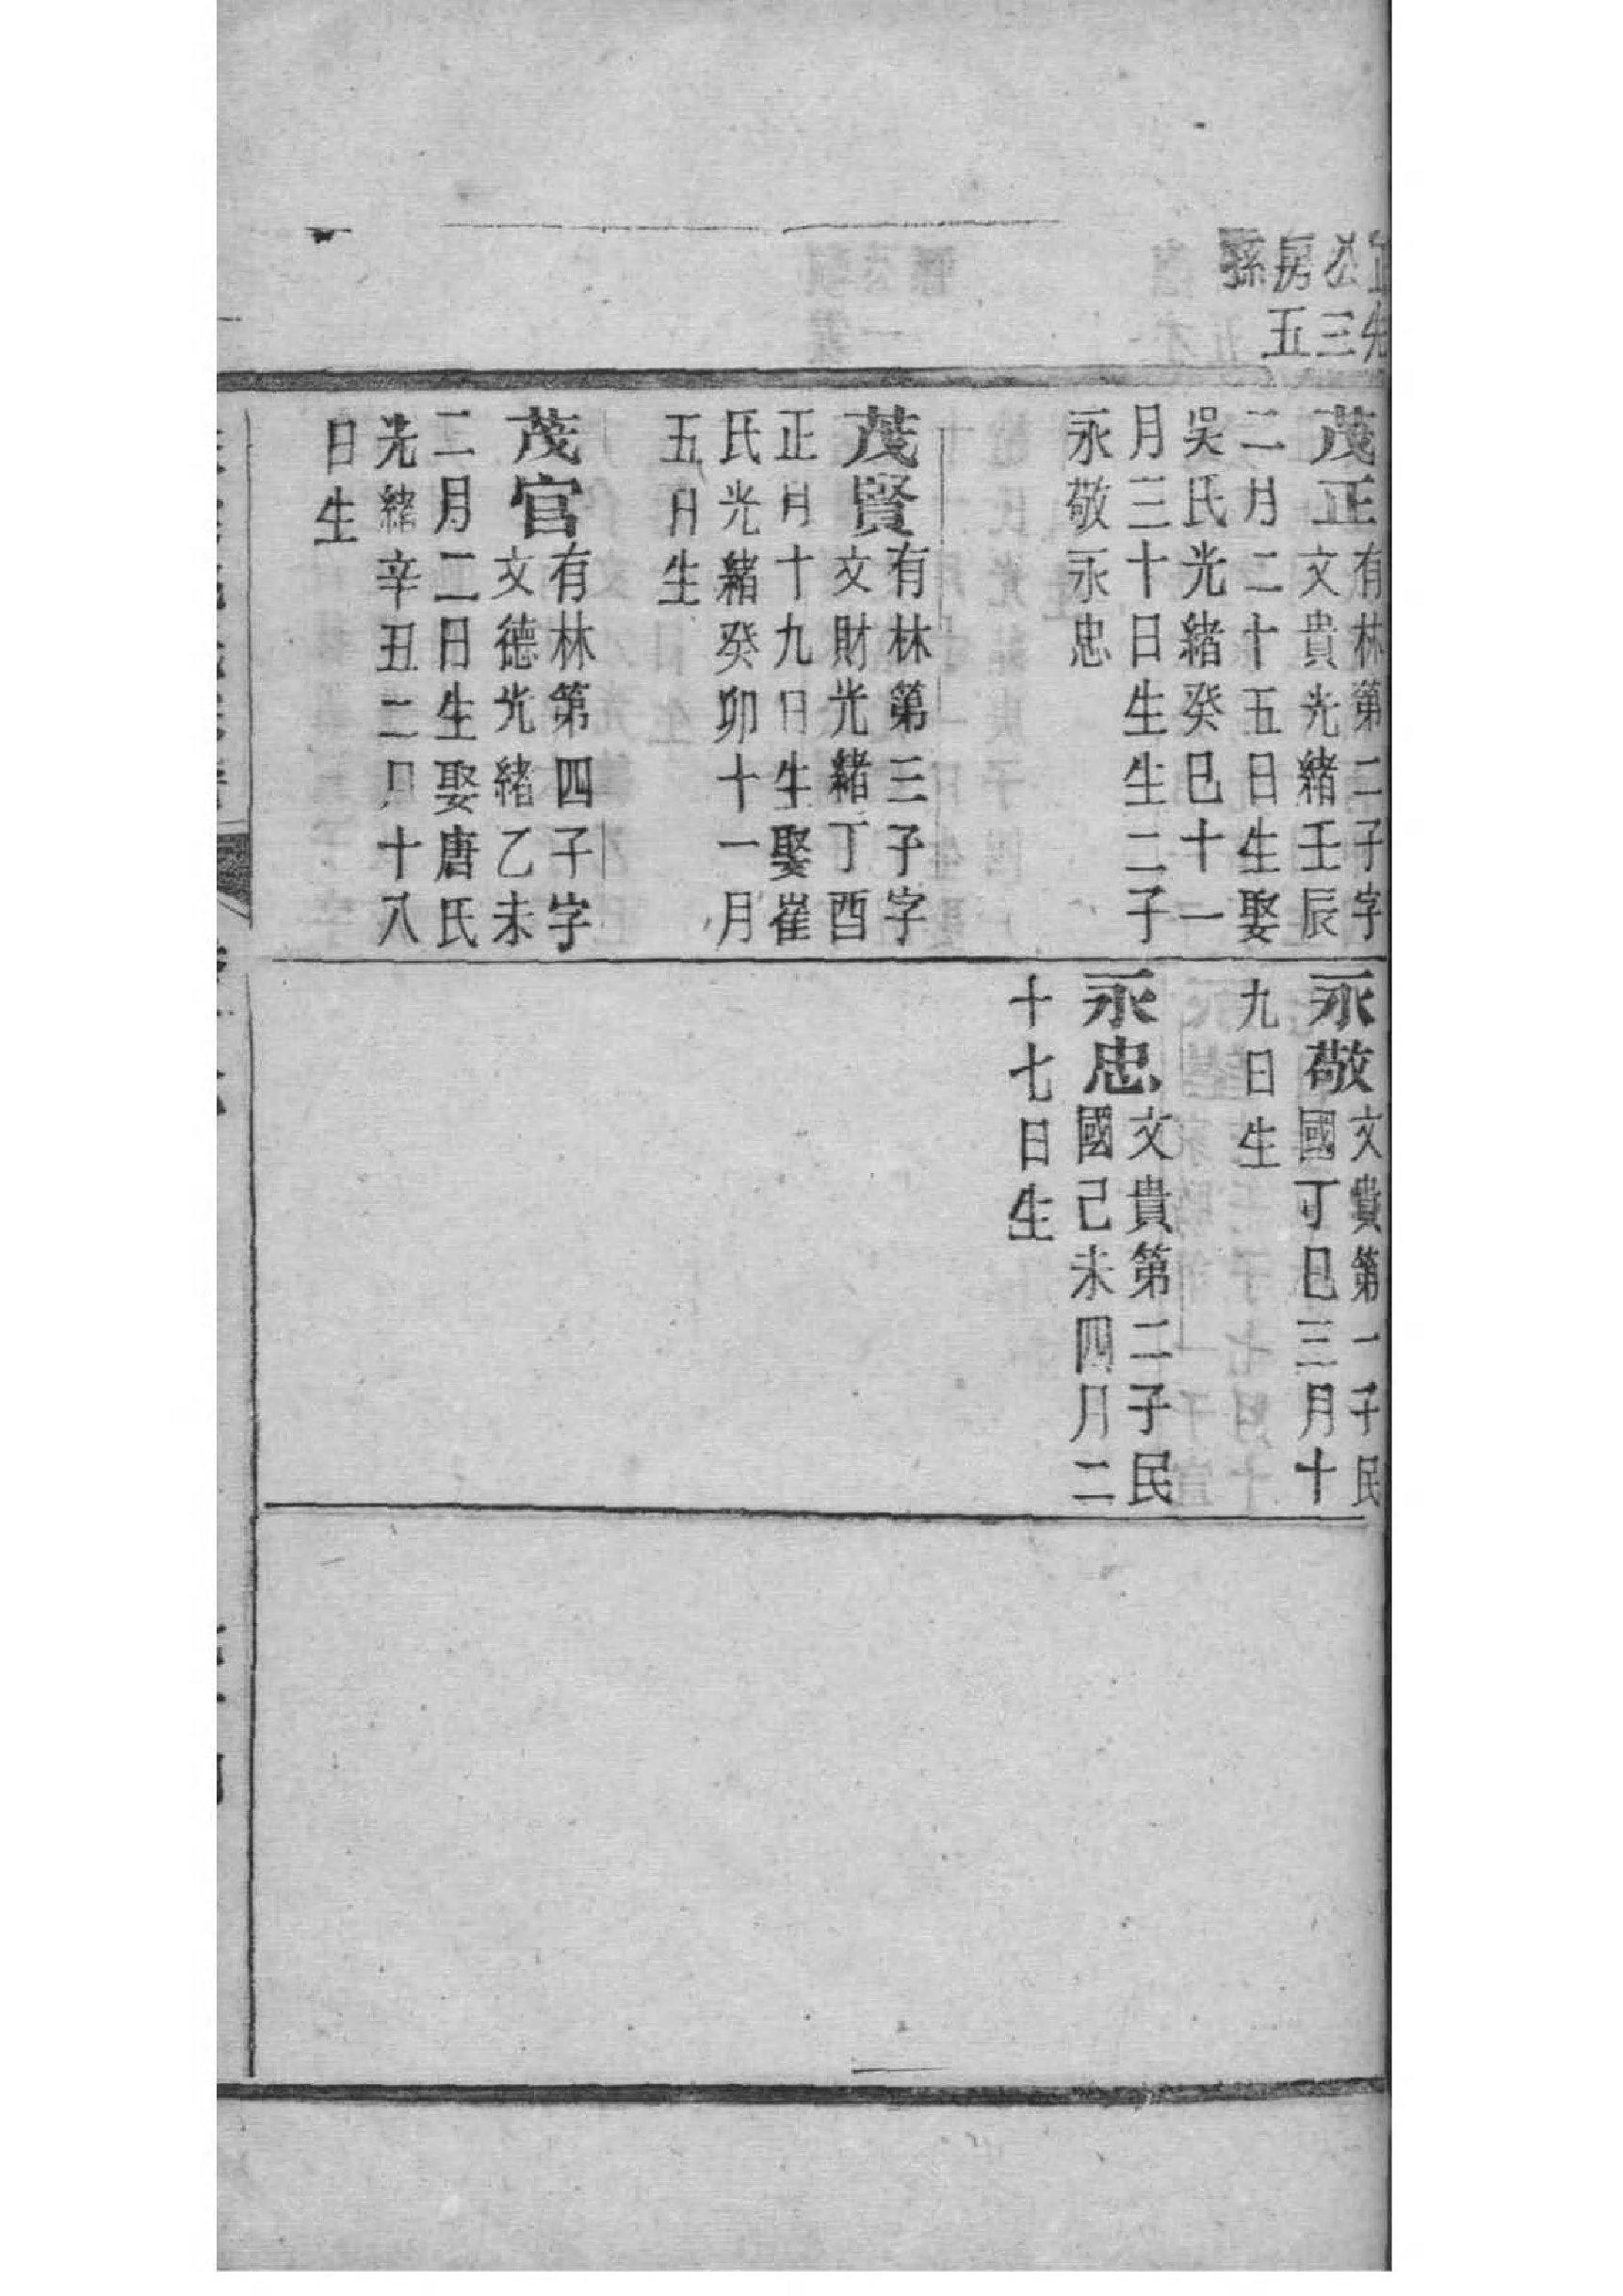 先
公三
房五
孫
茂正有林第二子字
文貴光緒壬辰
二月二十五日生娶
吳氏光緒癸巳十一
月三十日生生二子
永敬永忠
茂賢有林第三子字
文財光緒丁酉
正月十九日生娶崔
氏光緒癸卯十一月
五日生
茂官有林第四子字
文德光緒乙未
二月二日生娶唐氏
光緒辛丑二月十八
日生
永敬文貴第一子民
國丁巳三月十
九日生
永忠文貴第二子民
國己未四月二
十七日生